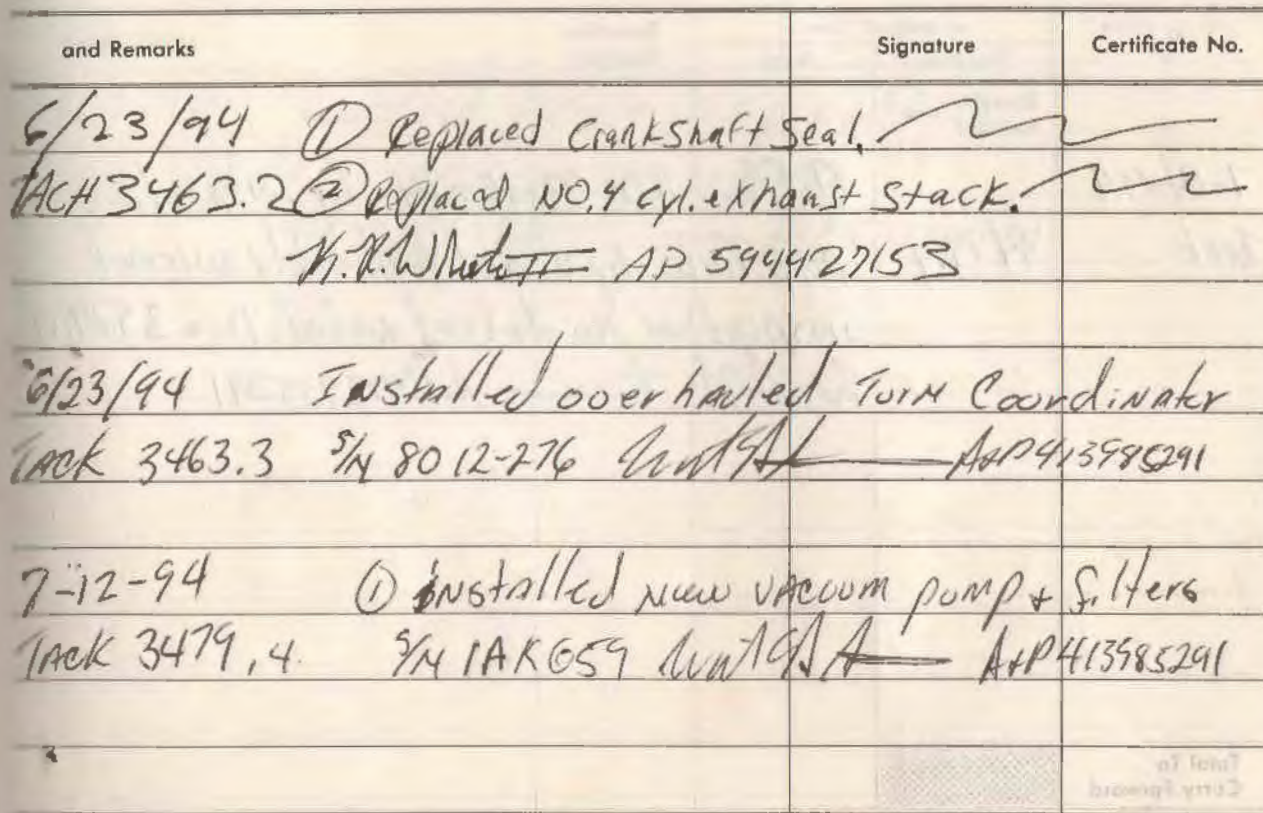 and Remarks Signature Certificate No.
6/23/94 ① Replaced Crankshaft Seal.
TACH 3463.2 ② Replaced NO.4 cyl. exhaust stack.
AP 594427153
6/23/94 Installed overhauled Turn Coordinator
TACK 3463.3 S/N 8012-276 A&P 413985291
7-12-94 ① installed New VACUUM pump & filters
TACK 3479.4 S/N 1AK659 A&P 413985291
Total To
Carry Forward